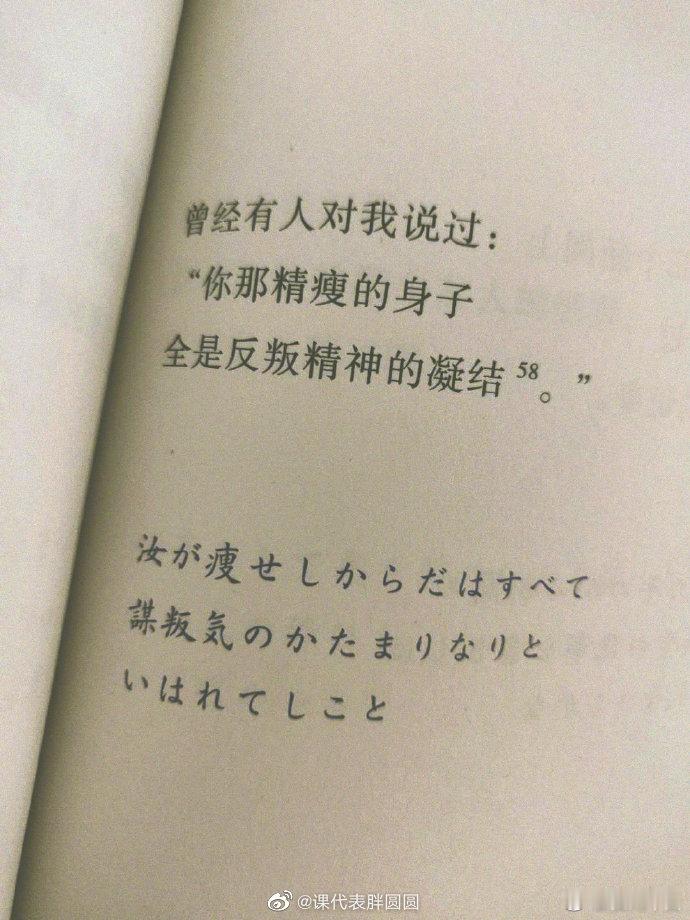 曾经有人对我说过：
“你那精瘦的身子
全是反叛精神的凝结58。”
汝が痩せしからだはすべて
謀叛気のかたまりなりと
いはれてしこと
@课代表胖圆圆